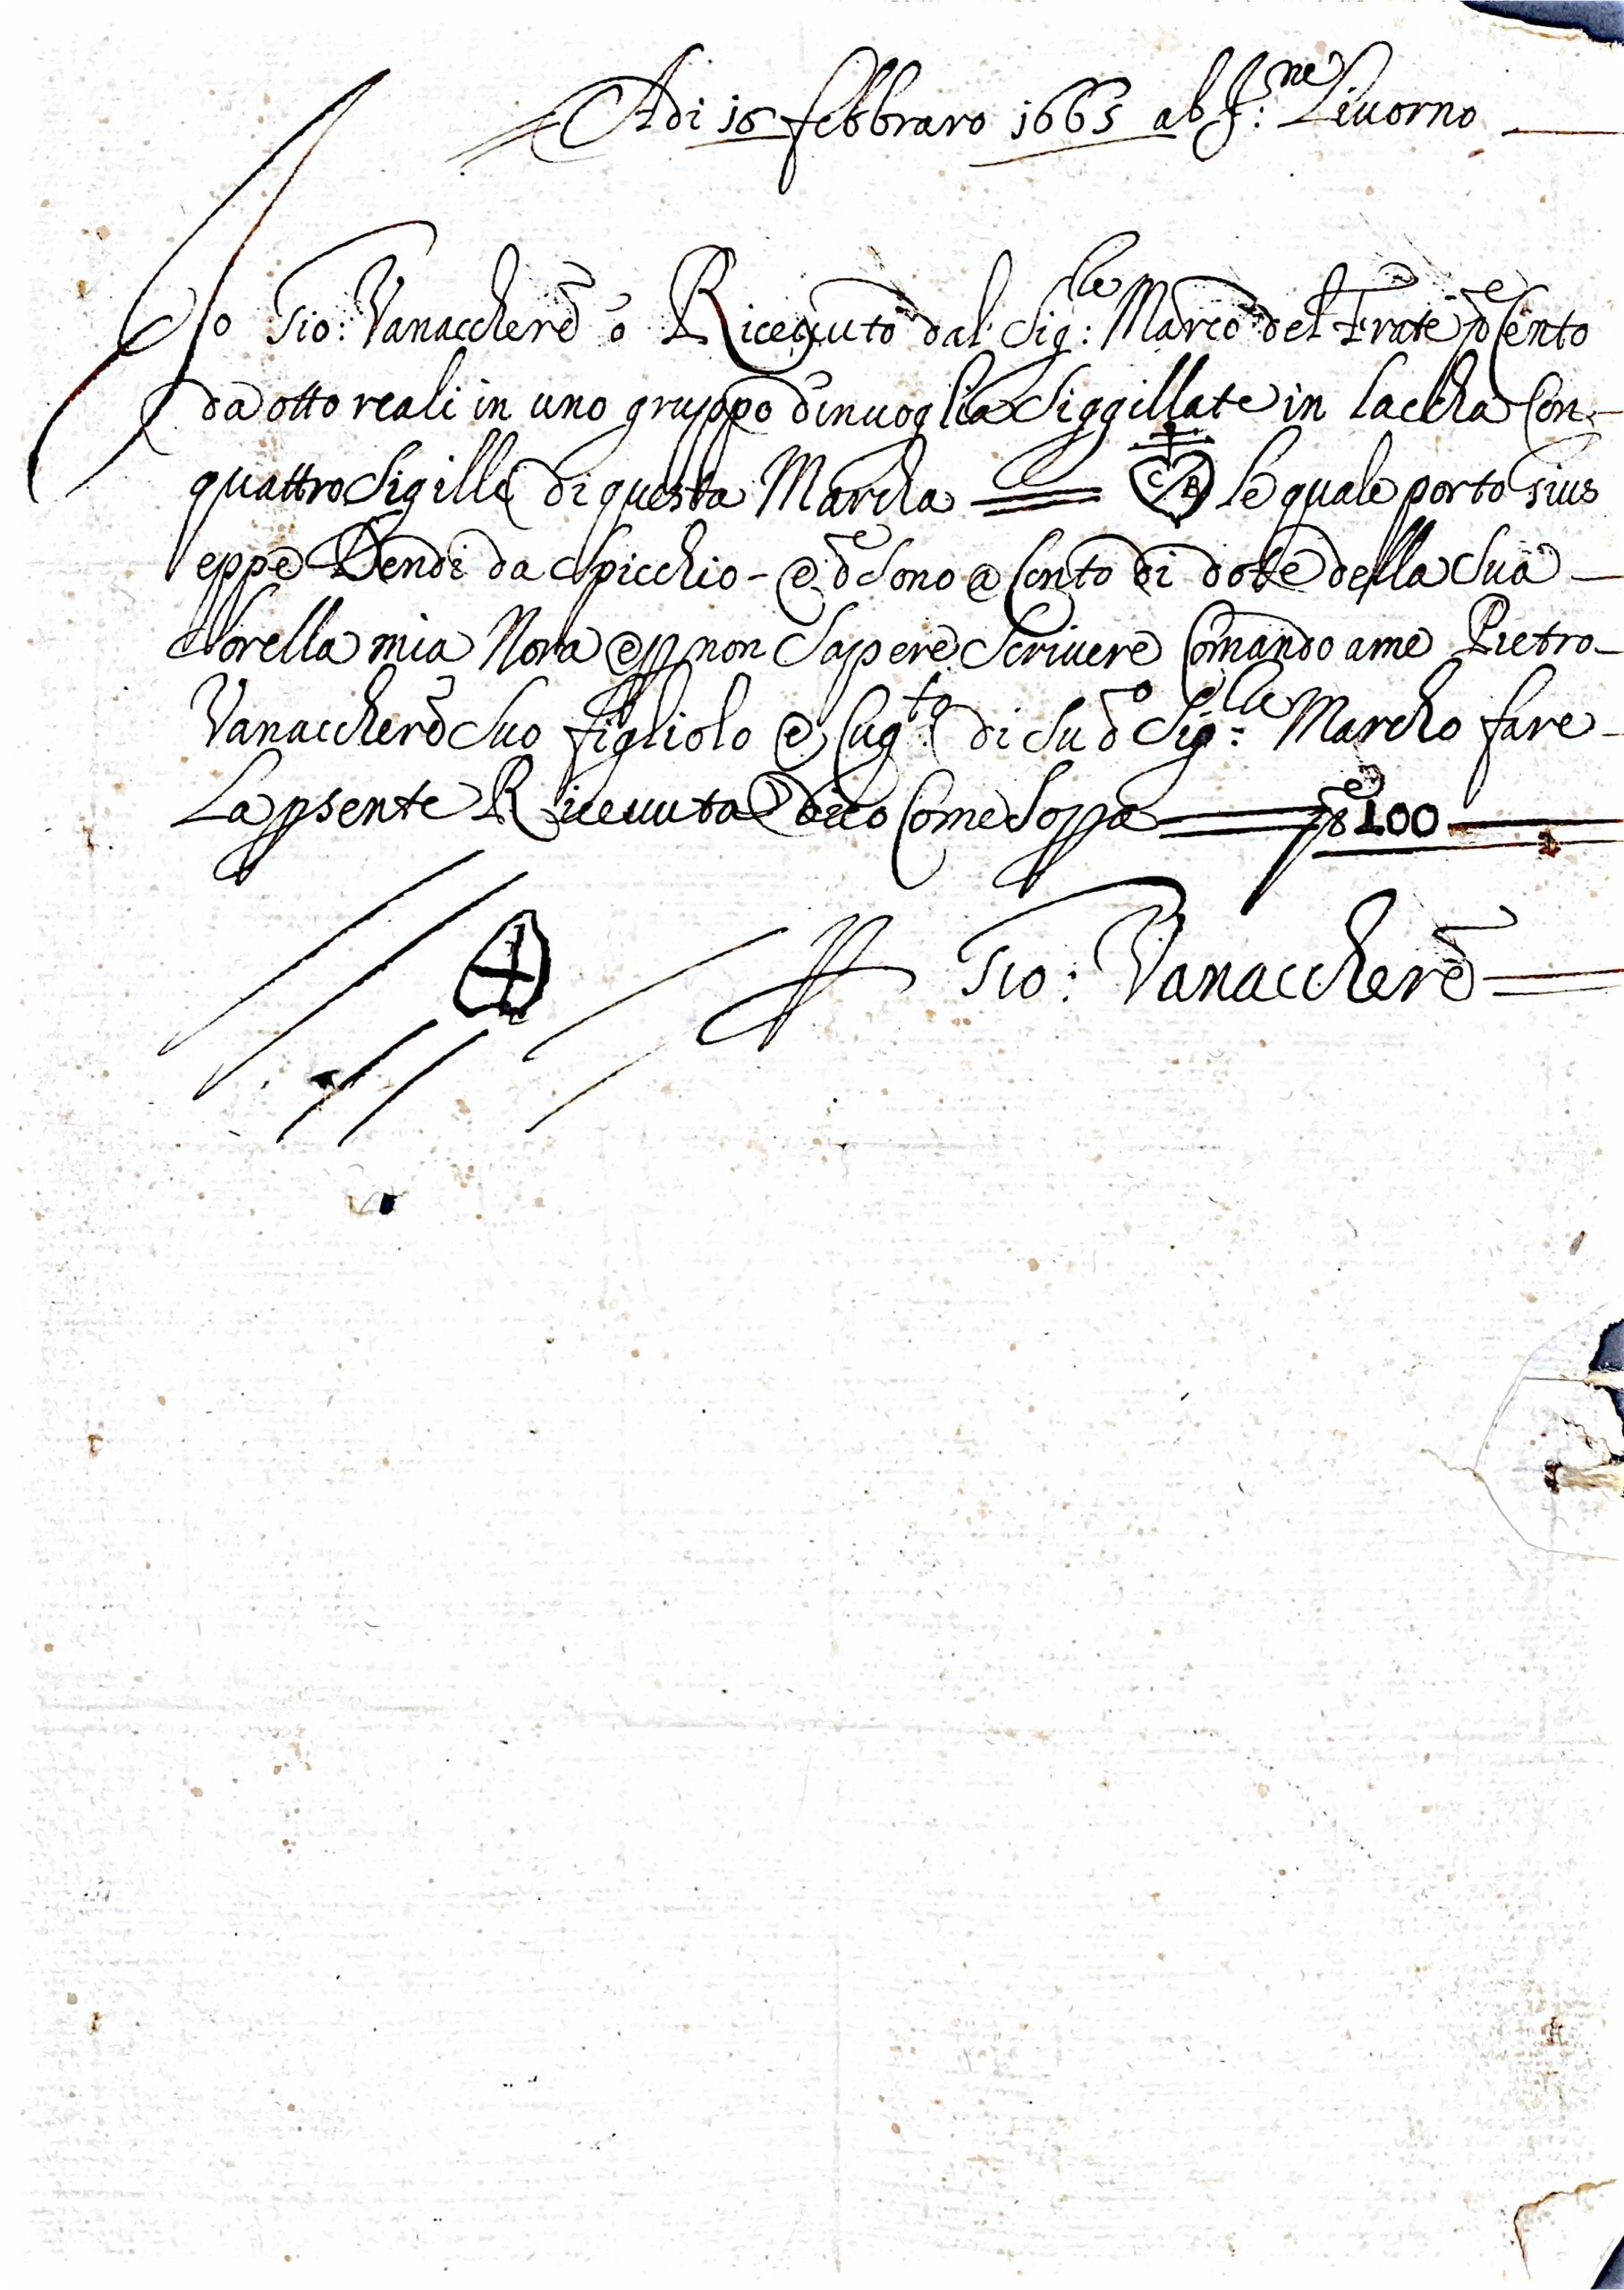 Adi 16 febbraro 1665 ab J:ne Livorno
Io Gio: Vanacchere o Riceuuto dal Sig:le Marco del Frate pe Cento
da otto reali in uno gruppo dinuoglia Siggillate in laccha Con
quattro Sigille di questa Marcha C B le quale porto Gius
eppe Dendi da Spicchio - e de sono a Conto di dote della Sua
Sorella mia Nora e p non Sapere Scrivere Comando a me Pietro
Vanacchere Suo figliolo e Cug:to di Sud.o Sig:le Marcho fare
La psente Riceuuta dico Come Sopa pe 8 100
Gio: Vanacchere